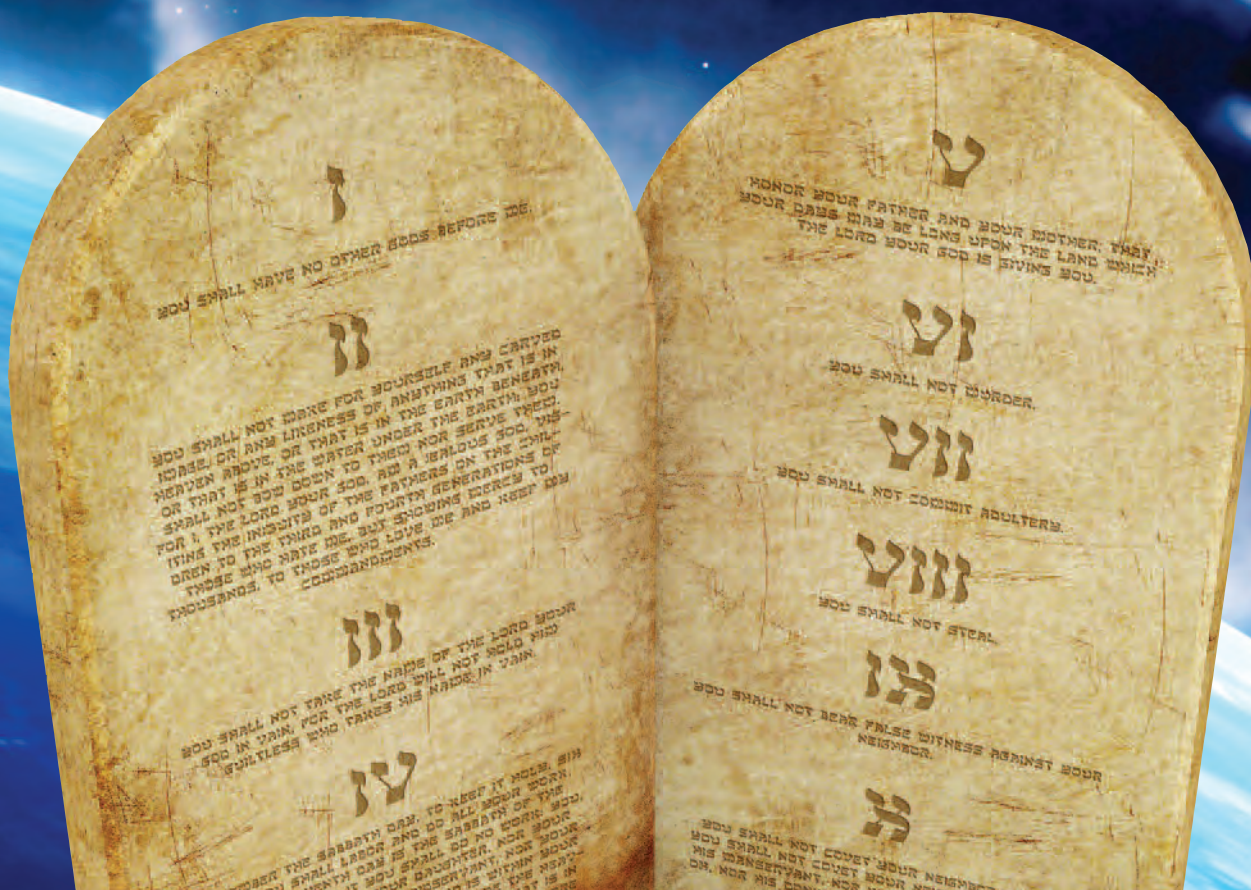 I
YOU SHALL HAVE NO OTHER GODS BEFORE ME.
II
YOU SHALL NOT MAKE FOR YOURSELF ANY CARVED
IMAGE, OR ANY LIKENESS OF ANYTHING THAT IS IN
HEAVEN ABOVE, OR THAT IS IN THE EARTH BENEATH,
OR THAT IS IN THE WATER UNDER THE EARTH; YOU
SHALL NOT BOW DOWN TO THEM NOR SERVE THEM.
FOR I, THE LORD YOUR GOD, AM A JEALOUS GOD, VIS-
ITING THE INIQUITY OF THE FATHERS ON THE CHIL-
DREN TO THE THIRD AND FOURTH GENERATIONS OF
THOSE WHO HATE ME, BUT SHOWING MERCY TO
THOUSANDS, TO THOSE WHO LOVE ME AND KEEP MY
COMMANDMENTS.
III
YOU SHALL NOT TAKE THE NAME OF THE LORD YOUR
GOD IN VAIN, FOR THE LORD WILL NOT HOLD HIM
GUILTLESS WHO TAKES HIS NAME IN VAIN.
IV
MBER THE SABBATH DAY, TO KEEP IT HOLY. SIX
SHALL LABOR AND DO ALL YOUR WORK,
ENTH DAY IS THE SABBATH OF THE
YOU SHALL DO NO WORK: YOU,
YOUR DAUGHTER, NOR YOUR
NSERVANT, NOR YOUR
IS WITHIN YOUR
THE HEAV
THAT IS IN
V
HONOR YOUR FATHER AND YOUR MOTHER, THAT
YOUR DAYS MAY BE LONG UPON THE LAND WHICH
THE LORD YOUR GOD IS GIVING YOU.
VI
YOU SHALL NOT MURDER.
VII
YOU SHALL NOT COMMIT ADULTERY.
VIII
YOU SHALL NOT STEAL
IX
YOU SHALL NOT BEAR FALSE WITNESS AGAINST YOUR
NEIGHBOR.
X
YOU SHALL NOT COVET YOUR NEIGHBO
YOU SHALL NOT COVET YOUR NE
HIS MANSERVANT, NOR
OX, NOR HIS DON